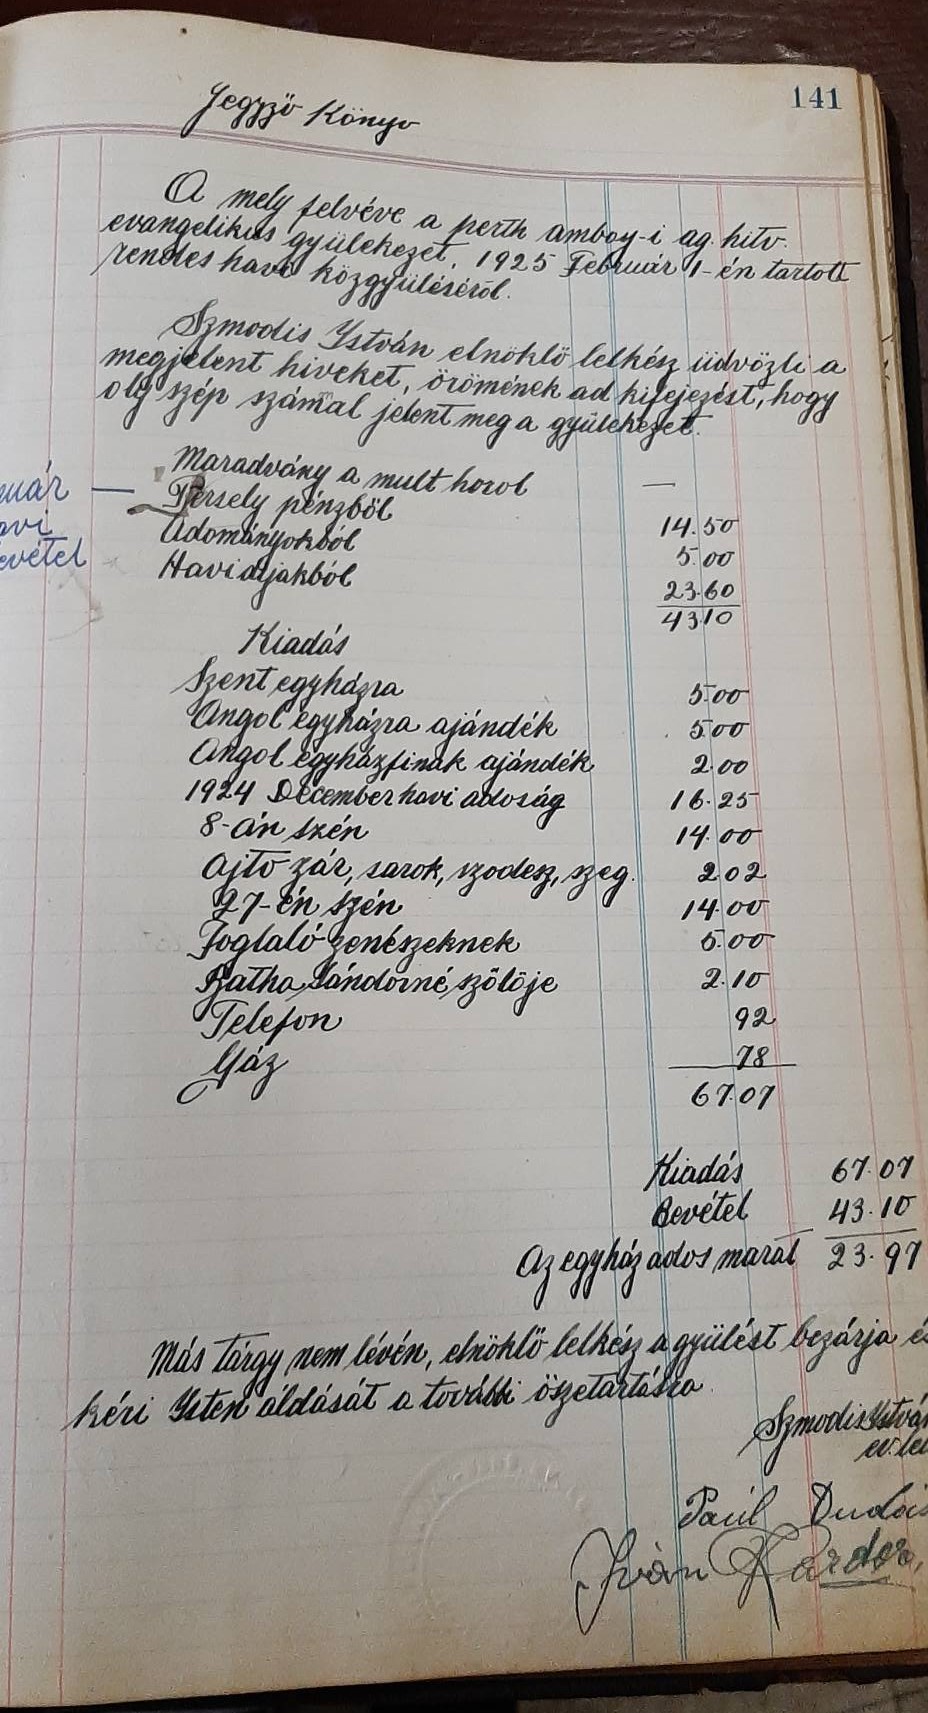 141
Jegyző Könyv
A mely felvéve a perth amboy-i ag. hitv.
evangelikus gyülekezet, 1925 Február 1-én tartott
rendes havi közgyüléséről.
Szmodis István elnöklő lelkész üdvözli a
megjelent hiveket, örömének ad kifejezést, hogy
oly szép számal jelent meg a gyülekezet.
Maradvány a mult horol —
uár — Persely pénzből 14.50
avi Adományokból 5.00
evétel Havi dijakból 23.60
43.10
Kiadás
Szent egyházra 5.00
Angol egyházra ajándék 5.00
Angol egyházfinak ajándék 2.00
1924 December havi adoság 16.25
8-án szén 14.00
Ajto zár, sarok, szeg. 2.02
27-én szén 14.00
Foglaló zenészeknek 5.00
Batha Sándorné szőlője 2.10
Telefon 92
Gáz 78
67.07
Kiadás 67.07
Bevétel 43.10
Az egyház ados marat 23.97
Más tárgy nem lévén, elnöklő lelkész a gyülést bezárja és
kéri Isten áldását a további öszetartásra.
Szmodis István
ev. lel
Paúl Dudás
Iván Kardos,